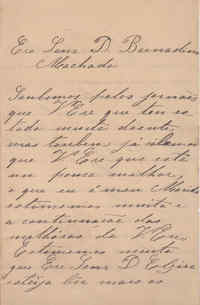 Exe Senr D. Bernardino
Machado
Soubemos pelos jornaes
que V Exe que tem es
tado muito doente,
mas tambem já
que V Exe que está
um pouco melhor,
o que eu e meu Marido
estimamos muito e
a continuação das
melhoras de V Exe.
Estimamos muito
que Exe Senra D. Elzira
esteja boa mais os